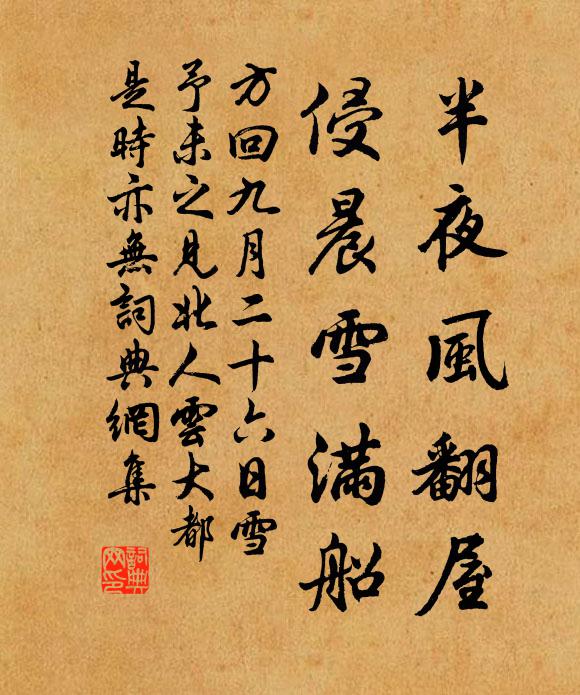 半夜風翻屋
侵晨雪滿船
方回九月二十六日雪
予未之見北人雲大都
是時亦無詞典網集
詞典
网印